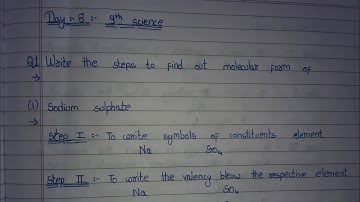 Day :- 8 :- 9th science
Q1 Write the steps to find out molecular form of
→
(i) Sodium sulphate
→
Step I :- To write symbols of constituents element
Na SO4
Step II :- To write the valency bleow the respective element
Na SO4